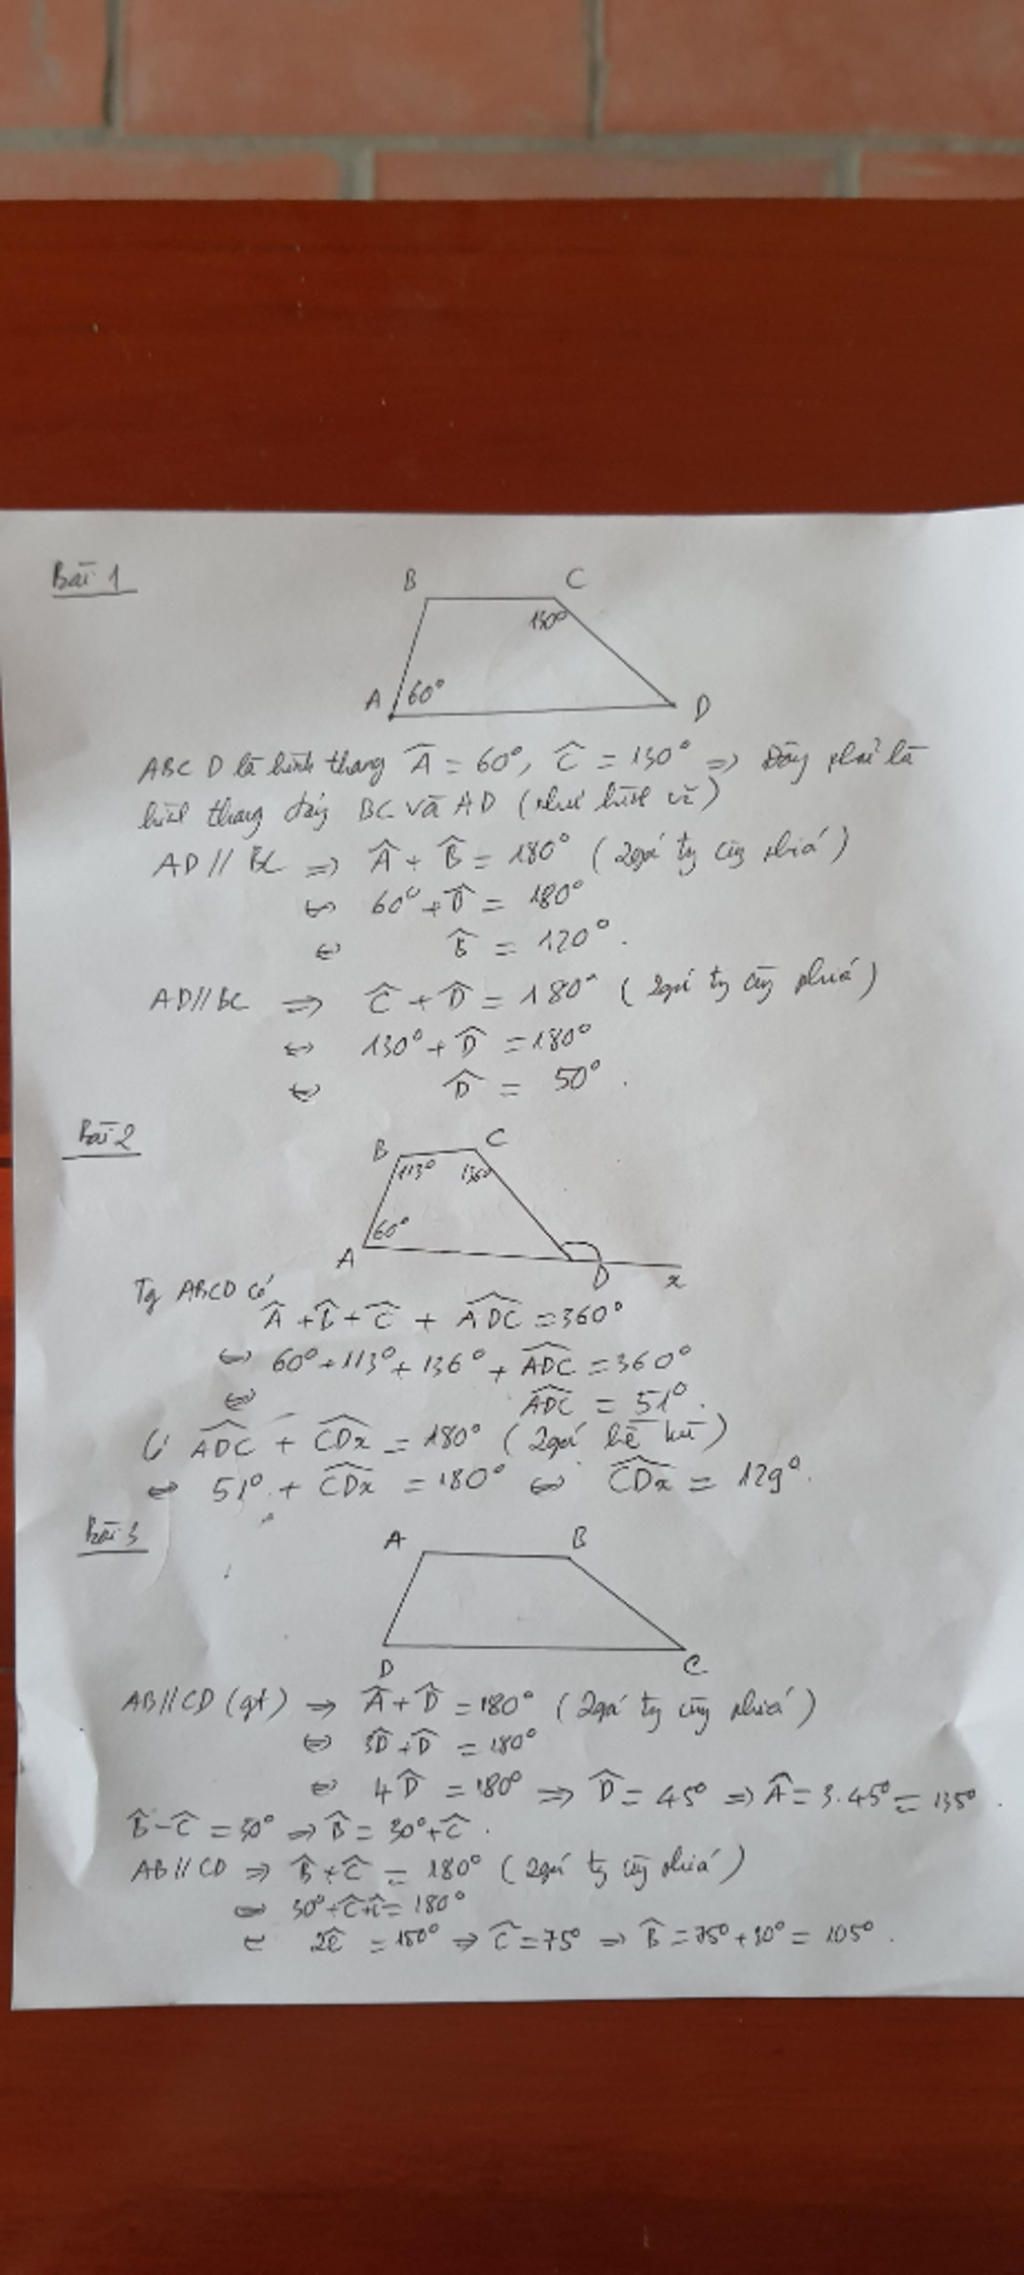 Bài 1
B C
130°
A 60° D
ABCD là hình thang Â = 60°, Ĉ = 130° => Đây phải là
hình thang đáy BC và AD (như hình vẽ)
AD // BC => Â + B̂ = 180° (2 góc cùng phía)
<=> 60° + D̂ = 180°
<=> B̂ = 120°.
AD // BC => Ĉ + D̂ = 180° (2 góc cùng phía)
<=> 130° + D̂ = 180°
<=> D̂ = 50°.
Bài 2
B C
113° 136°
60°
A D x
Tg ABCD có
Â + B̂ + Ĉ + ADC^ = 360°
<=> 60° + 113° + 136° + ADC^ = 360°
<=> ADC^ = 51°.
ADC^ + CDx^ = 180° (2 góc kề bù)
<=> 51° + CDx^ = 180° <=> CDx^ = 129°.
Bài 3
A B
D C
AB // CD (gt) => Â + D̂ = 180° (2 góc cùng phía)
<=> 3D̂ + D̂ = 180°
<=> 4D̂ = 180° => D̂ = 45° => Â = 3.45° = 135°.
B̂ - Ĉ = 30° => B̂ = 30° + Ĉ.
AB // CD => B̂ + Ĉ = 180° (2 góc cùng phía)
<=> 30° + Ĉ + Ĉ = 180°
<=> 2Ĉ = 150° => Ĉ = 75° => B̂ = 75° + 30° = 105°.